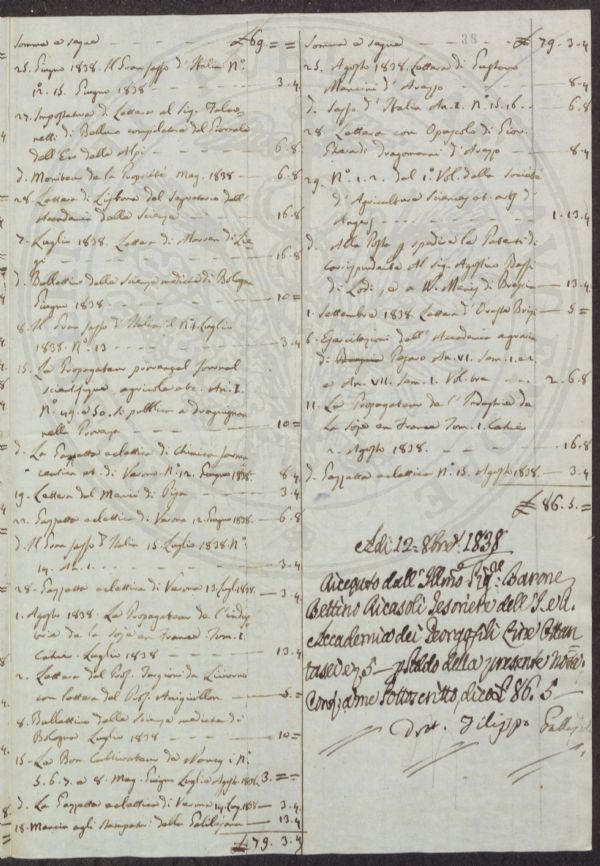 Somma e segue £ 69. = =
25. Giugno 1838. Il Gran Sasso d'Italia N.º
12. 15. Giugno 1838 3.4
27. Impostatura di Lettera al Sig.
di Belluno compilatore del Giornale
dell' Eco delle Alpi 6.8
d. Monitore de la Propriété Mag. 1838 6.8
28. Lettera di del Segretario dell'
Accademia delle Scienze 16.8
7. Luglio 1838. Lettera di
16.8
d. Bullettino delle Scienze mediche di Bologna
Giugno 1838 10 =
8. Il Gran Sasso d'Italia Luglio
1838. N.º 13 3.4
15. Le Propagateur provençal Journal
scientifique agricole etc. An. I.
N.º 49. e 50. si pubblica a Draguignan
nella Provenza 10 =
d. La Gazzetta eclettica di Chimica farma
ceutica et. di Verona N.º 12. Giugno 1838 8.4
19. Lettera del di Pisa 3.4
22. Gazzetta eclettica di Verona 12. Giugno 1838 6.8
d. Il Gran Sasso d'Italia 15 Luglio 1838 N.º
14. An. 1. 3.4
28. Gazzetta eclettica di Verona 13 Lugl. 1838 3.4
1. Agosto 1838. Le Propagateur de l'indus
trie de la Soje en France Tom. 1.
Cahier Luglio 1838 13.4
2. Lettera del Prof. Targioni da Livorno
con lettera del Prof. 5 =
8. Bullettino delle Scienze mediche di
Bologna Luglio 1838 10 =
15. Le Bon Cultivateur de Nancy N.º
5. 6. 7. e 8. Mag. Giugno Luglio Agosto 1838. 3. = =
d. La Gazzetta eclettica di Verona 14. Lug. 1838 3.4
18. Mancia agli Stampatori della Galileiana 13.4
£ 79. 3.4
Somma e segue 38 £ 79. 3.4
25. Agosto 1838. Lettera di Gustavo
Mancini d'Arezzo 8.4
d. Sasso d'Italia An. I. N. 15. 16. 6.8
28. Lettera con Opuscolo di
Dragomanni d'Arezzo 8.4
29. N.º 1. 2. del 1.º Vol. della Società
d'Agricoltura Scienze et. Arti d'
1. 13.4
d. Alla Posta p. spedire la Patente di
corrispondente Al Sig. Agostino Bassi
di Lodi, e a W. di 13.4
1. Settembre 1838. Lettera d'Oreste Brizi 5 =
6. Esercitazioni dell' Accademia agraria
di Pesaro An. VI. Sem. 1. e 2.
e An. VII. Sem. 1. Vol. tre 2. 6.8
11. Le Propagateur de l'Industrie de
la Soje en France Tom. 1. Cahier
2. Agosto 1838. 16.8
d. Gazzetta eclettica N.º 15. Agosto 1838 3.4
£ 86. 5. =
Adi 12. 8bre. 1838
Ricevuto dall' Illmo. Sig.re Barone
Bettino Ricasoli Tesoriere dell' I. e R.
Accademia dei Georgofili Lire Ottan
tasei e 5 — p saldo della presente Nota
e me sottoscritto dico £ 86. 5 —
Dott. Filippo